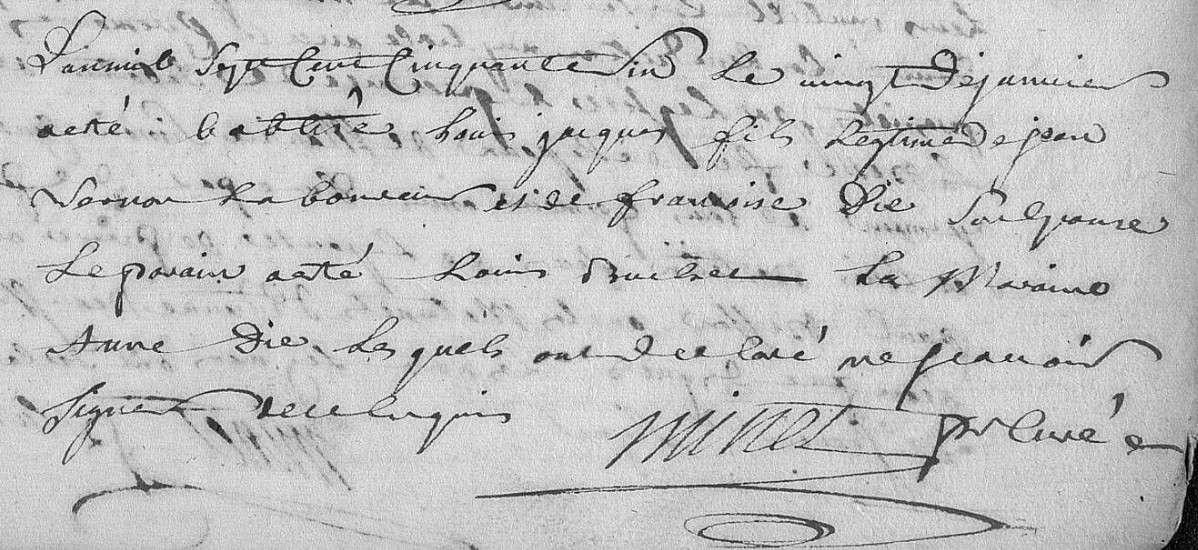 Lanmil Sept Cent Cinquante Six le vingt De janvier
acté batisé Louis jacques fils Legtime De jean
Laboureur et de francoise Die Son Epouse
Le parain acté Louis La Maraine
Anne Die Les quels ont declaré ne scavoir
Signer de ce Enquis minet ptr Curé